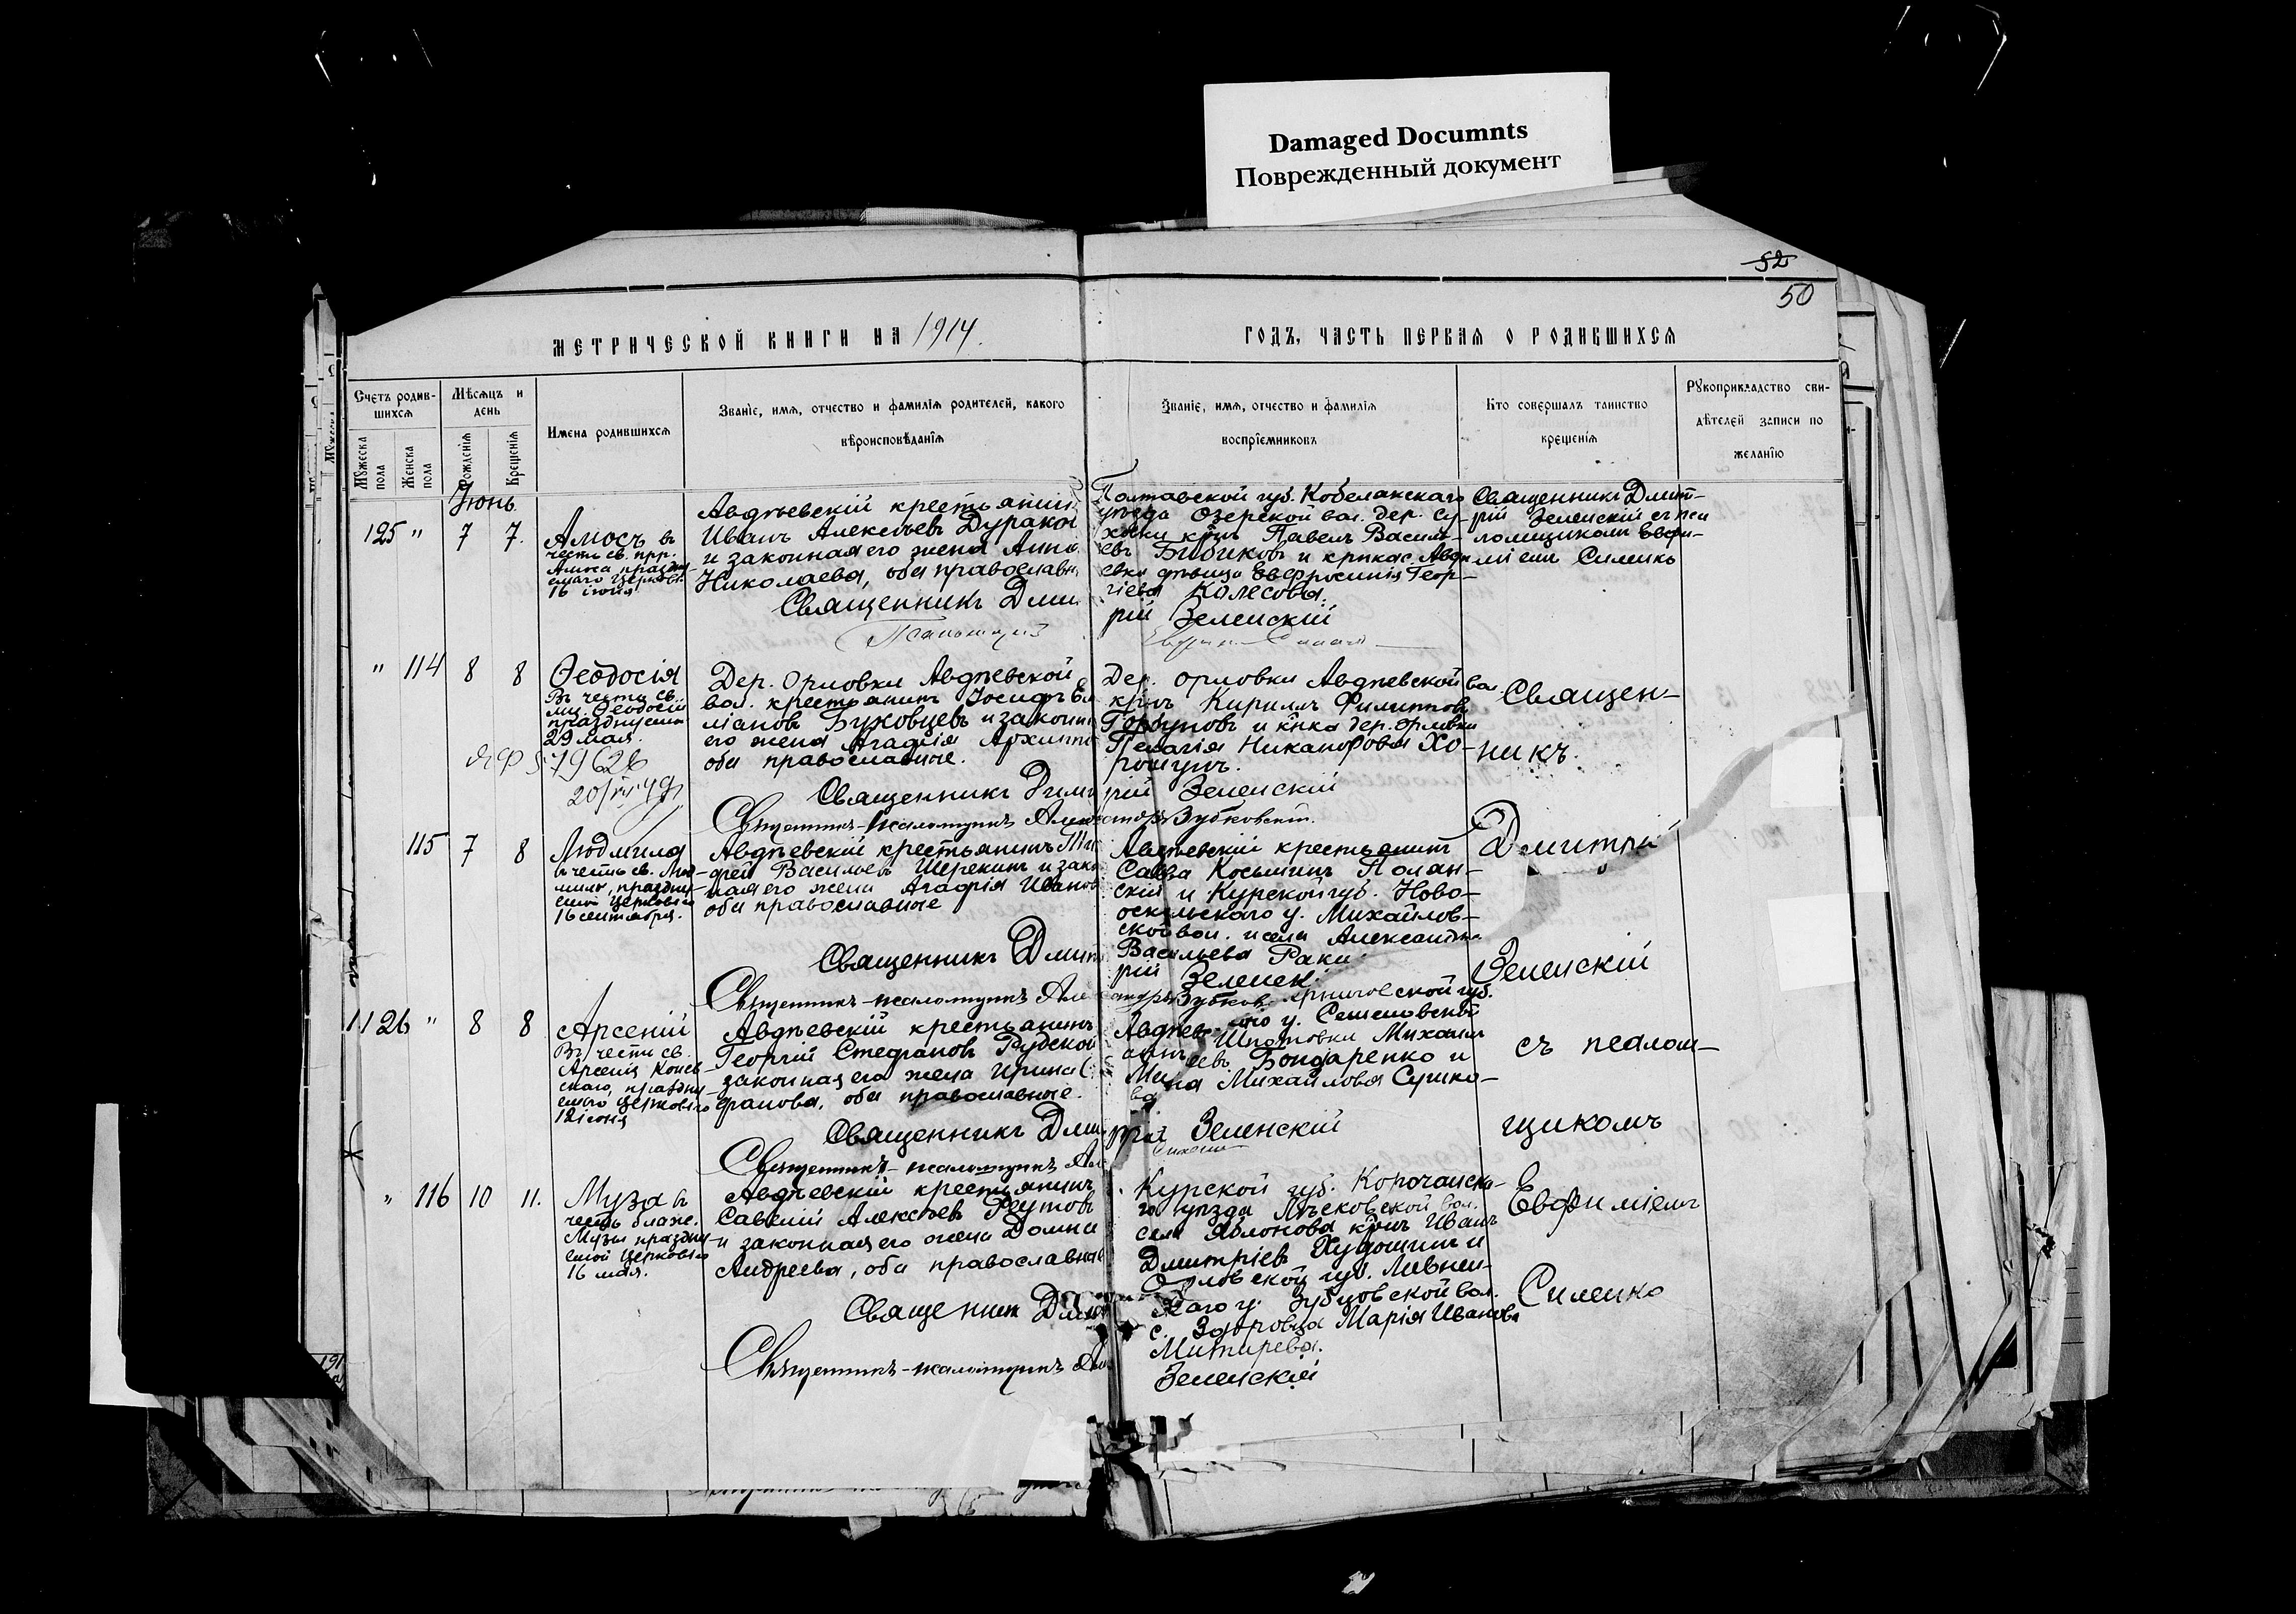 Damaged Documnts
Поврежденный документ
52
50
МЕТРИЧЕСКОЙ КНИГИ НА 1914.
ГОДЪ, ЧАСТЬ ПЕРВАЯ О РОДИВШИХСЯ
Счетъ родив-
шихся
Мужеска
пола
Женска
пола
Мѣсяцъ и
день
Рожденія
Крещенія
Имена родившихся
Званіе, имя, отчество и фамилія родителей, какого
вѣроисповѣданія
Званіе, имя, отчество и фамилія
воспріемниковъ
Кто совершалъ таинство
крещенія
Рукоприкладство сви-
дѣтелей записи по
желанію
Іюнь
125 " 7 7.
Амосъ въ
честь св. прр.
Амоса праздну-
емаго церковію
16 іюня
Авдѣевскій крестьянин
Иванъ Алексѣевъ Дураков
и законная его жена Анна
Николаева, оба православн
Священникъ Дми
Полтавской губ. Кобелакскаго
уѣзда Озерской вол. дер. Су-
хинки крнъ Павелъ Василь-
евъ Бибиковъ и крнка с. Авдѣ
евки дѣвица Евфросинія Геор-
гіева Колесова.
рій Зеленскій
Священникъ Дмит-
рій Зеленскій съ пса
ломщикомъ Евфи-
міемъ Силенко
" 114 8 8
Ѳеодосія
Въ честь св.
мц. Ѳеодосіи
празднуемой
29 мая.
ЯФ 19626
20/VII 49
Дер. Орловки Авдѣевской
вол. крестьянинъ Іосифъ Ем
ліановъ Буховцевъ и законн
его жена Агафія Архипо
оба православные.
Священникъ Дими
Священникъ-псаломщикъ Алек
Дер. Орловки Авдѣевской вол.
крнъ Кириллъ Филипповъ
Горбуновъ и кнка дер. Орловки
Пелагія Никанорова Хо-
рошунъ.
рій Зеленскій
сандръ Зубковскій.
115 7 8
Людмила
въ честь св. Люд-
милы, праздну-
емой церковію
16 сентября.
Авдѣевскій крестьянинъ Ти
фей Васильевъ Шерекинъ и зако
ная его жена Агафія Иванов
оба православные
Священникъ Дмит
Священникъ-псаломщикъ Але
Авдѣевскій крестьянинъ
Савва Косьминъ Полян-
скій и Курской губ. Ново-
оскольскаго у. Михайлов-
ской вол. и села Александра
Васильева Раки
рій Зеленск
сандръ Зубков
1126 " 8 8
Арсеній
Въ честь св.
Арсенія Конев-
скаго, праздну-
емаго церковію
12 іюня
Авдѣевскій крестьянинъ
Георгій Стефановъ Рудской
законная его жена Ирина С
фанова, оба православные.
Священникъ Дми
Священникъ-псаломщикъ Ал
ской губ.
Авдѣев у. Семеловской
Шпотовки Михаилъ
евъ Бондаренко и
Михайлова Сушко-
ва
рій Зеленскій
" 116 10 11.
Муза въ
честь блаж.
Музы праздну-
емой церковію
16 мая.
Авдѣевскій крестьянинъ
Савелій Алексѣевъ Реутовъ
и законная его жена Домна
Андреева, оба православные
Священник Дми
Священникъ-псаломщикъ Ал
Курской губ. Корочанска-
го уѣзда Лѣсковской вол.
села Яблонова крнъ Иванъ
Дмитріевъ Худошинъ и
Орловской губ. Ливнен-
скаго у. Зубцовской вол.
с. Здоровца Марія Иванова
Митирева.
Зеленскій
Священ-
никъ
Дмитрій
Зеленскій
съ псалом-
щикомъ
Евфиміемъ
Силенко